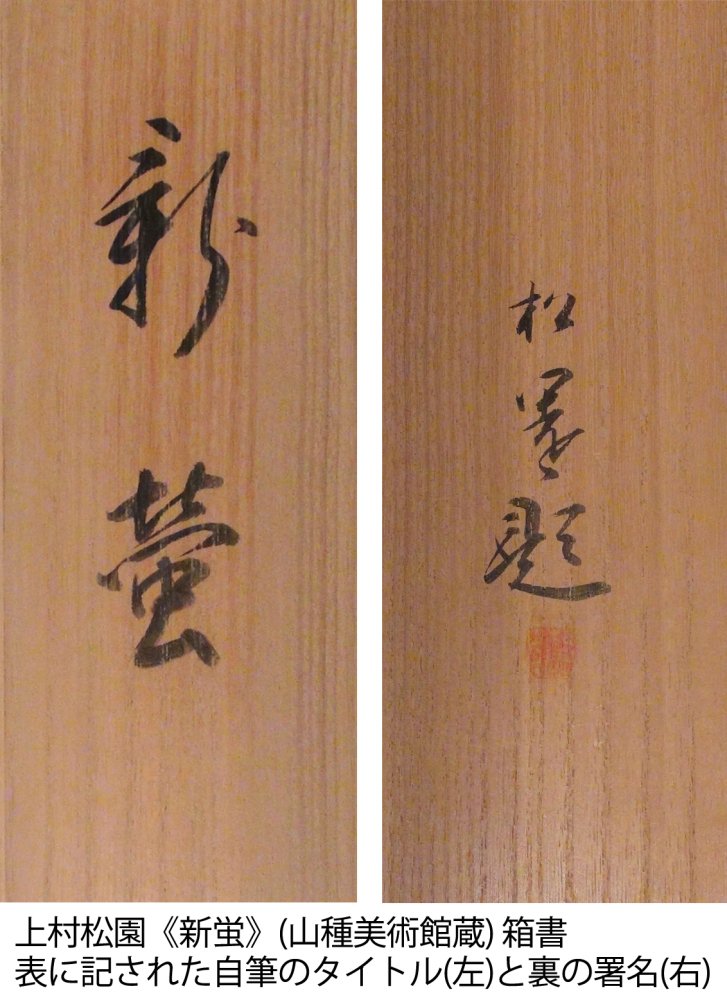 新
螢
松
園
題
上村松園《新蛍》(山種美術館蔵) 箱書
表に記された自筆のタイトル(左)と裏の署名(右)